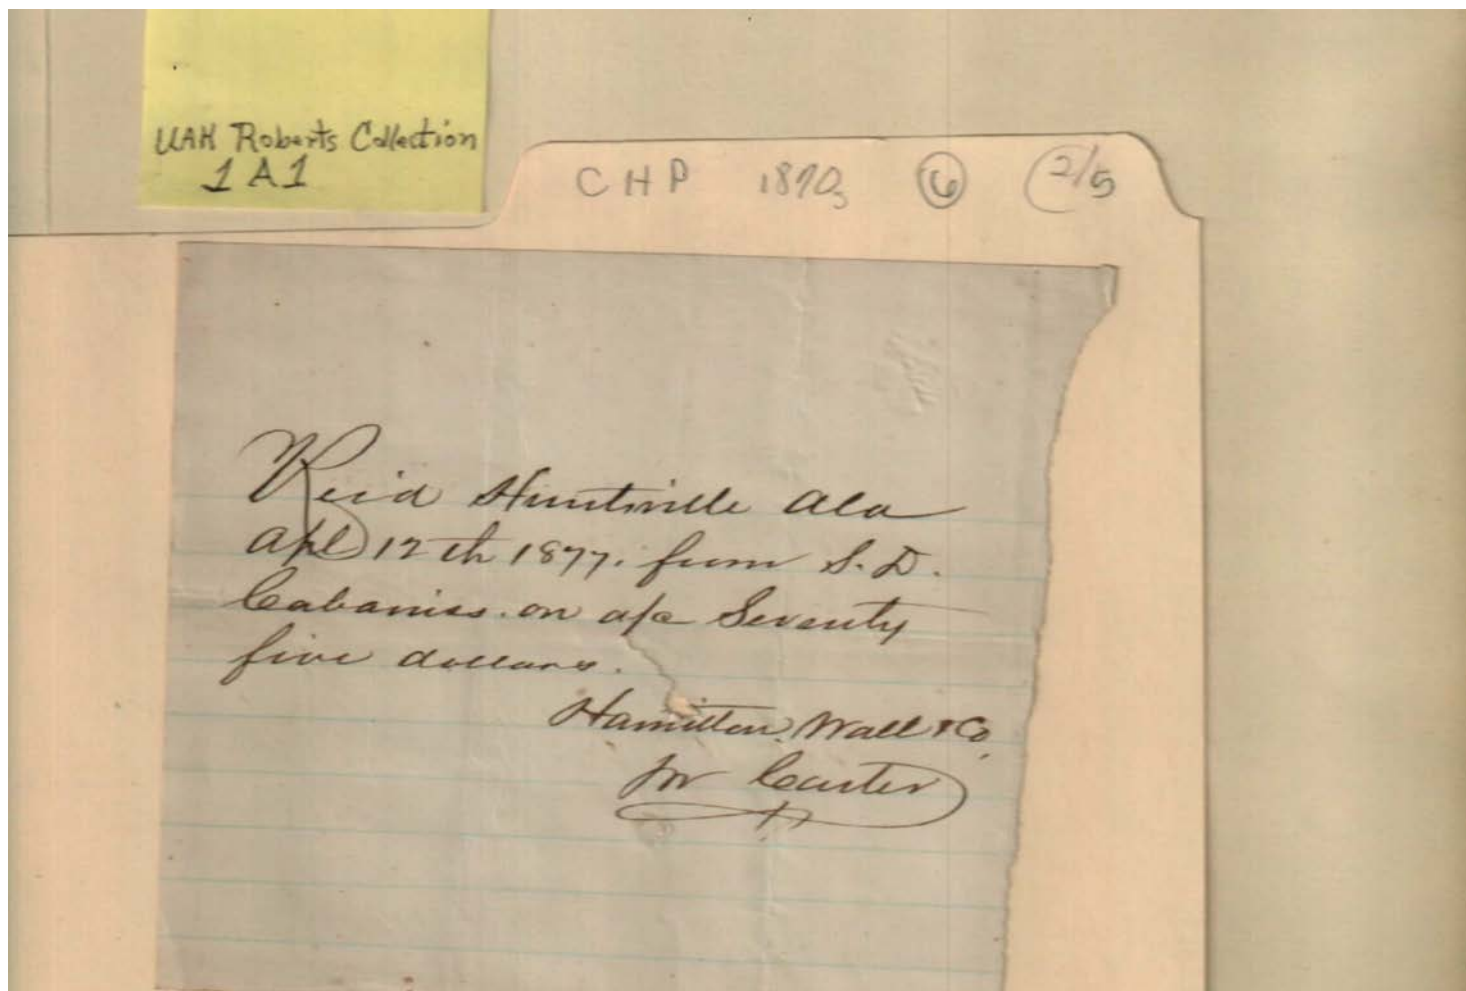 UAH Roberts Collection
1A1
CHP 1870s 6 2/5
Recd Huntsville Ala
Apl 12th 1877. from S. D.
Cabaniss. on a/c Seventy
five dollars.
Hamilton, Wall & Co.
Carter